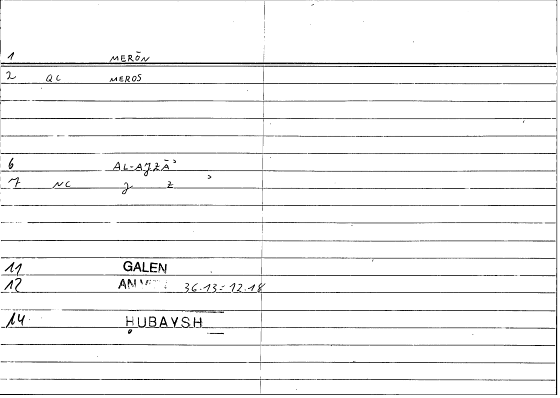 1 MERŌN
2 QC MEROS
6 AL-AǦZĀʾ
7 NC ǧ z ʾ
11 GALEN
12 36.13 = 12.18
14 ḤUBAYSH